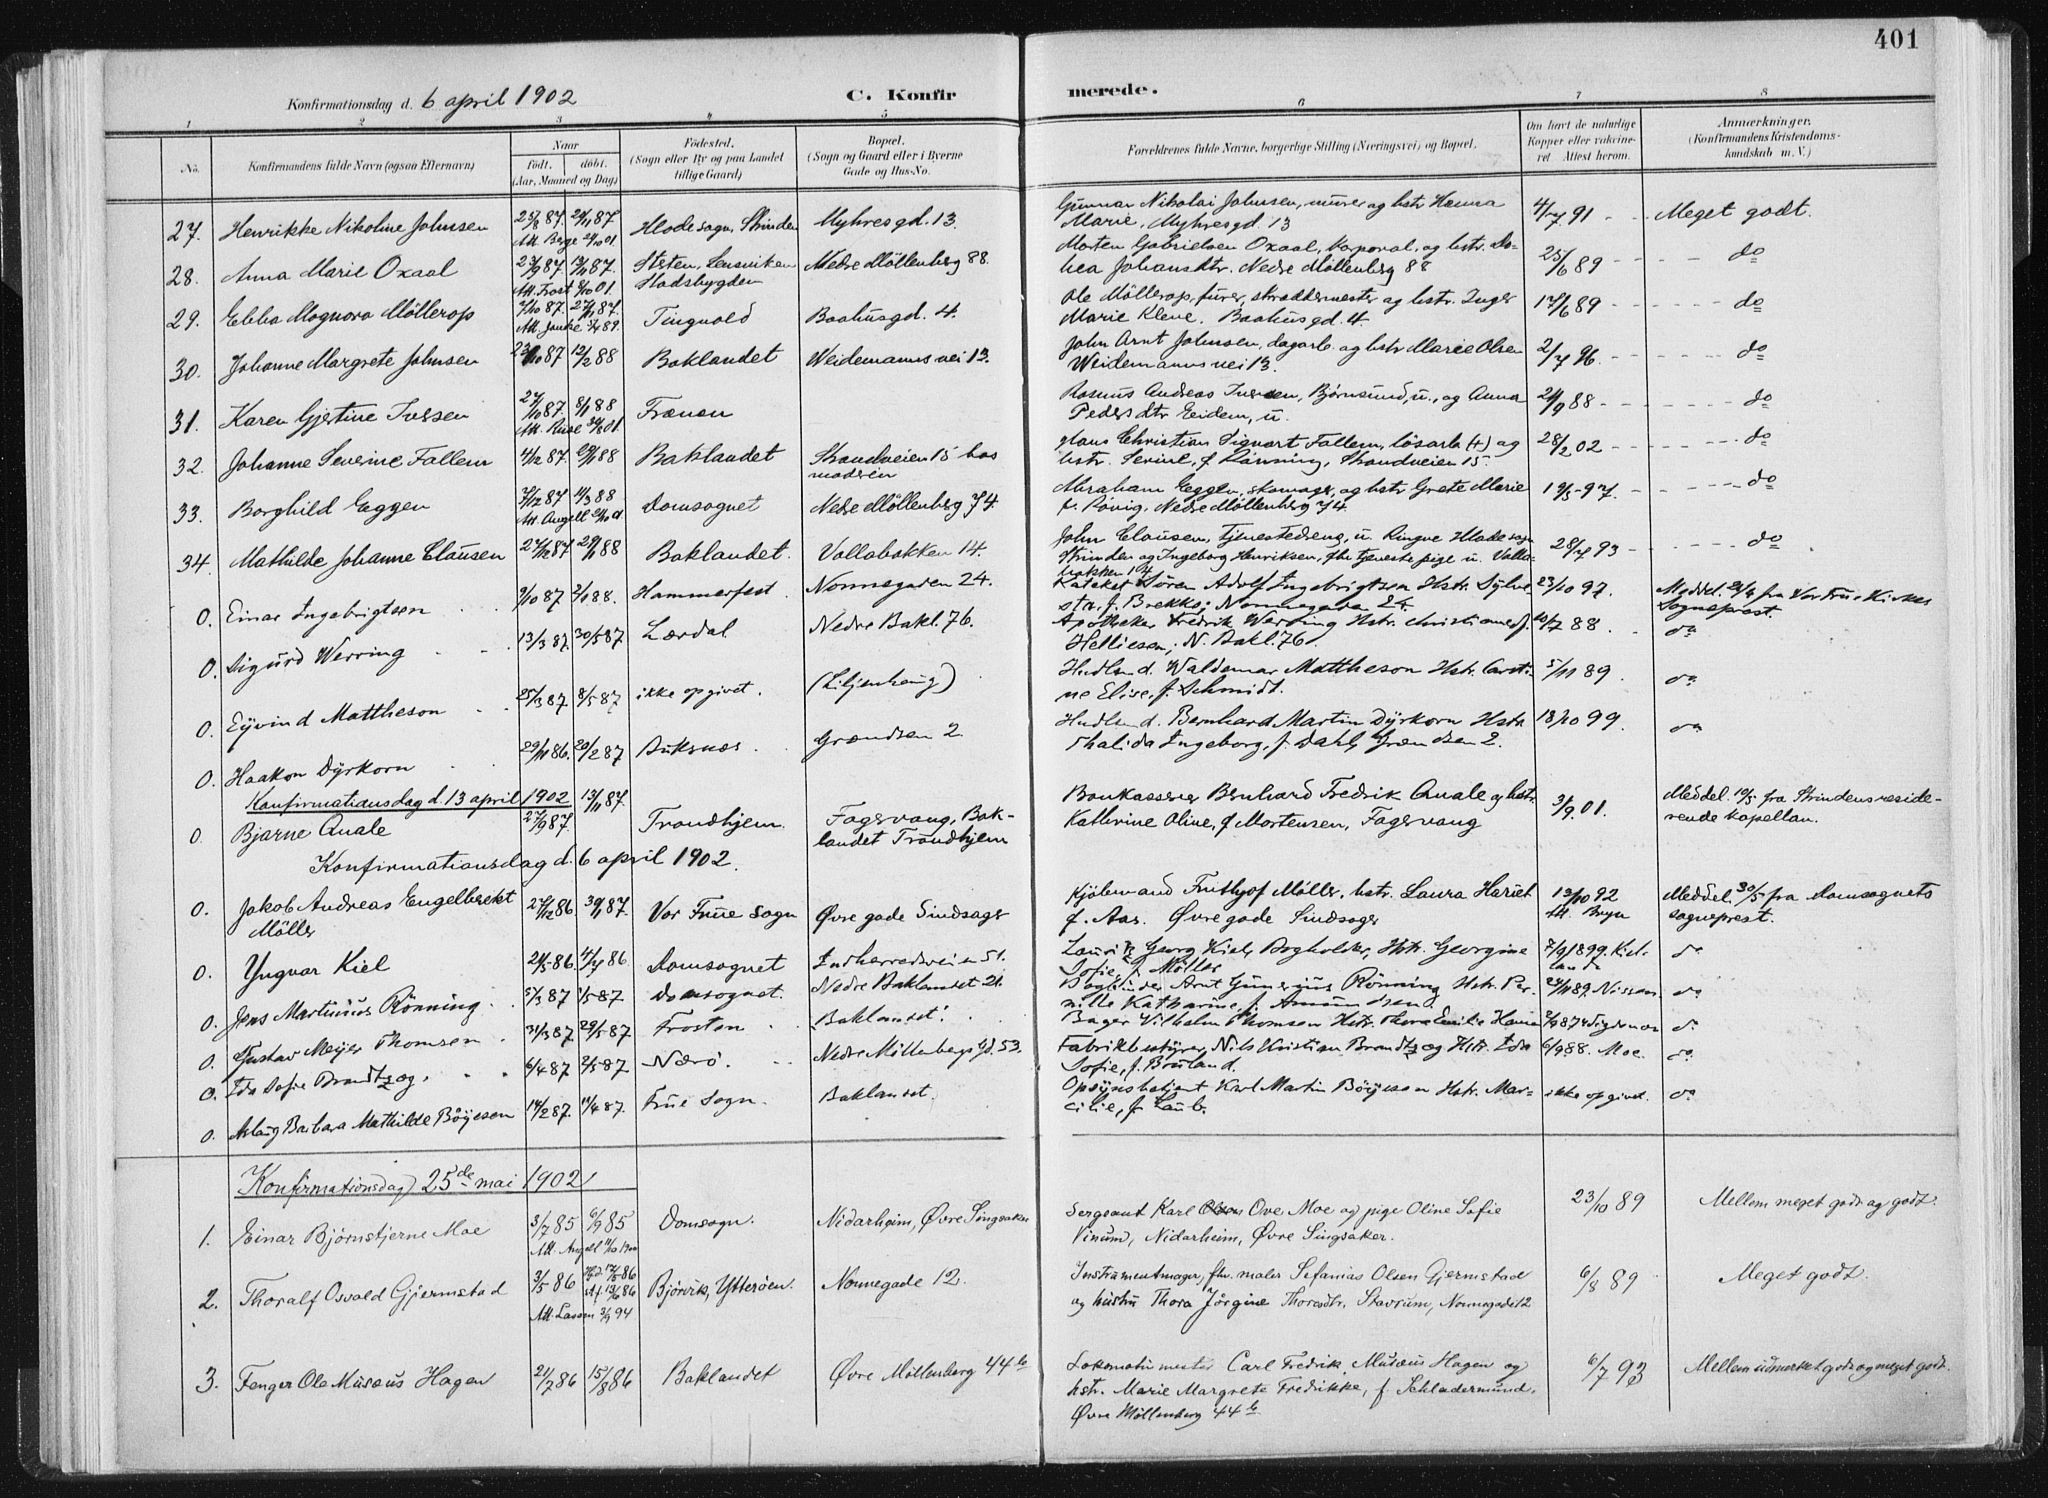 401
Konfirmationsdag d. 6 april 1902 C. Konfirmerede.
1 2 3 4 5 6 7 8
No. Konfirmandens fulde Navn (ogsaa Efternavn) Naar født. døbt. (Aar, Maaned og Dag) Fødested. (Sogn eller By og paa Landet tillige Gaard) Bopæl. (Sogn og Gaard eller i Byerne Gade og Hus-No. Forældrenes fulde Navne, borgerlige Stilling (Næringsvei) og Bopæl. Om havt de naturlige Kopper eller vakcineret. Attest herom. Anmærkninger. (Konfirmandens Kristendomskundskab m. V.)
27. Henrikke Nikoline Johnsen 25/8 87. 20/11 87 Hlade sogn, Strinden Myhresgd. 13. Gunnar Nikolai Johnsen, murer og hstr Hanna 4/7 91 Meget godt.
Marie, Myhresgd. 13
28. Anna Marie Oxaal 23/9 87. 13/11 87. Sletten, Lensviken Nedre Möllenberg 88. Morten Gabrielsen Oxaal, korporal, og hstr. Do- 25/6 89 do
Att. Frost Stadsbygden hea Johansdtr. Nedre Möllenberg 88
29. Ebba Magnora Möllerop 7/10 87. 27/11 87. Tingvold Baahusgd. 4. Ole Möllerop, furer, skræddermester og hstr. Inger 17/6 89 do
Marie Klene. Baahusgd. 4
30. Johanne Margrete Johnsen 23/10 87 12/2 88 Baklandet Weidemanns vei 13. John Arnt Johnsen, dagarb. og hstr Marie Olsen 2/7 96 do
Weidemanns vei 13.
31. Karen Gjertine Iversen 27/10 87. 8/1 88 Frænen Rasmus Andreas Iversen, Bjørnsund, u., og Anna 21/9 88 do
Pedersdtr Eidem, u.
32. Johanne Severine Fallem 4/12 87. 29/1 88 Baklandet Strandveien 15 hos Hans Christian Sigvart Fallem, løsarb (+) og 28/2 02 do
moderen hstr. Serine, f. Rönning, Strandveien 15.
33. Borghild Eggen 7/12 87 11/3 88 Domsognet Nedre Möllenberg 74. Abraham Eggen, skomager, og hstr Grete Marie 19/5 97. do
Att. Angell f. Rönig, Nedre Möllenberg 74.
34. Mathilde Johanne Clausen 27/12 87 29/1 88 Baklandet. Vollabakken 14. John Clausen, tjenestedreng, u. Ringve Hlade sogn 28/7 93 do
Strinden og Ingeborg Henriksen, fhv. tjenestepige u. Volla-
bakken 14
0. Einar Ingebrigtson 9/10 87 2/1 88. Hammerfest. Nonnegaden 24. Kateket Søren Adolf Ingebrigtson Hstr. Sylve- 23/10 97. Meddel. 21/4 fra Vor Frue Kirkes
sta, f. Brekke; Nonnegaden 24. Sogneprest.
0. Sigurd Werring 13/3 87. 30/5 87 Lærdal Nedre Bakl. 76. Apotheker Fredrik Werring Hstr. Christiane f. 10/7 88. do
Helliesen; N. Bakl. 76.
0. Eyvind Mattheson 25/3 87 8/5 87 ikke opgivet. (Liljenhaug) Hndlsmd. Waldemar Mattheson Hstr. Carsti- 5/11 89. do
ne Elise, f. Schmidt.
0. Haakon Dyrkorn 29/11 86. 20/2 87 Buksnæs. Grændsen 2. Hndlsmd. Bernhard Martin Dyrkorn Hstr. 18/10 99. do
Thalida Ingeborg, f. Dahl, Grændsen 2.
Konfirmationsdag d. 13 april 1902
0. Bjarne Quale 27/9 87. 13/11 87. Trondhjem. Fagervang, Bak- Bankasserer Bernhard Fredrik Quale og hstr. 3/9 01. Meddel. 10/5 fra Strindens reside-
landet Trondhjem Kathrine Oline, f Mortensen, Fagervang rende kapellan.
Konfirmationsdag d. 6 april 1902.
0. Jakob Andreas Engelbrekt 27/12 86. 30/1 87. Vor Frue sogn Øvre gade Sindsager Kjøbmand Frithjof Möller, hstr. Laura Hariet 13/10 92 Meddel. 30/5 fra Domsognets
Möller f. Aas. Øvre gade Sindsager Att. Bryn sogneprest.
0. Yngvar Kiel 21/5 86. 4/7 86 Domsognet Indherredsveien 51. Laurits Georg Kiel, Bogholder, Hstr. Georgine 7/9 1899. Kiel- do
Sofie, f. Möller land
0. Jens Martinius Rönning. 5/3 87 1/5 87 Domsognet. Nedre Baklandet 21. Bogbinder Arnt Gunerius Rönning Hstr. Per- 27/11 89. Nissen. do
nille Katharine, f. Amundsen.
0. Gustav Meijer Thomsen 31/3 87. 29/5 87 Frosten Baklandet. Bager Wilhelm Thomsen Hstr. Thora Emilie Hanna do
0. Ida Sofie Brandtzæg. 6/4 87 2/5 87 Nærö. Nedre Möllenbergs gd. 53. Fabrikbestyrer, Nils Kristian Brandtzæg Hstr. Ida 6/9 88. Moe. do
Sofie, f. Bruland.
0. Aslaug Barbara Mathilde Böyesen 14/2 87. 11/4 87. Frue sogn. Baklandet. Opsynsbetjent Karl Martin Böyesen Hstr. Mar- ikke opgivet. do
cilie, f. Laub.
Konfirmationsdag 25de mai 1902
1. Einar Bjørnstjerne Moe 3/7 85 6/9 85 Domsogn. Nidarheim, Øvre Singsaker Sergeant Karl Ove Moe og pige Oline Sofie 23/10 89 Mellem meget godt og godt.
Att. Angell 11/10 1900 Vinum, Nidarheim, Øvre Singsaker.
2. Thoralf Osvald Gjermstad 3/5 86 Hjd 12/5 86 Bjørvik, Ytterøen. Nonnegade 12. Instrumentmager, fhv. maler Sefanias Olsen Gjermstad 6/8 89 Meget godt.
Att. Lassen 3/9 94 og hustru Thora Jörgine Thorsdtr. Stavrum, Nonnegade 12
3. Fenger Ole Musæus Hagen 21/7 86 15/8 86 Baklandet Øvre Möllenberg 44 b Lokomotivmester Carl Fredrik Musæus Hagen og 6/7 93 Mellem udmerket godt og meget godt.
hstr. Marie Margrete Fredrikke, f Schladermund.
Øvre Möllenberg 44 b